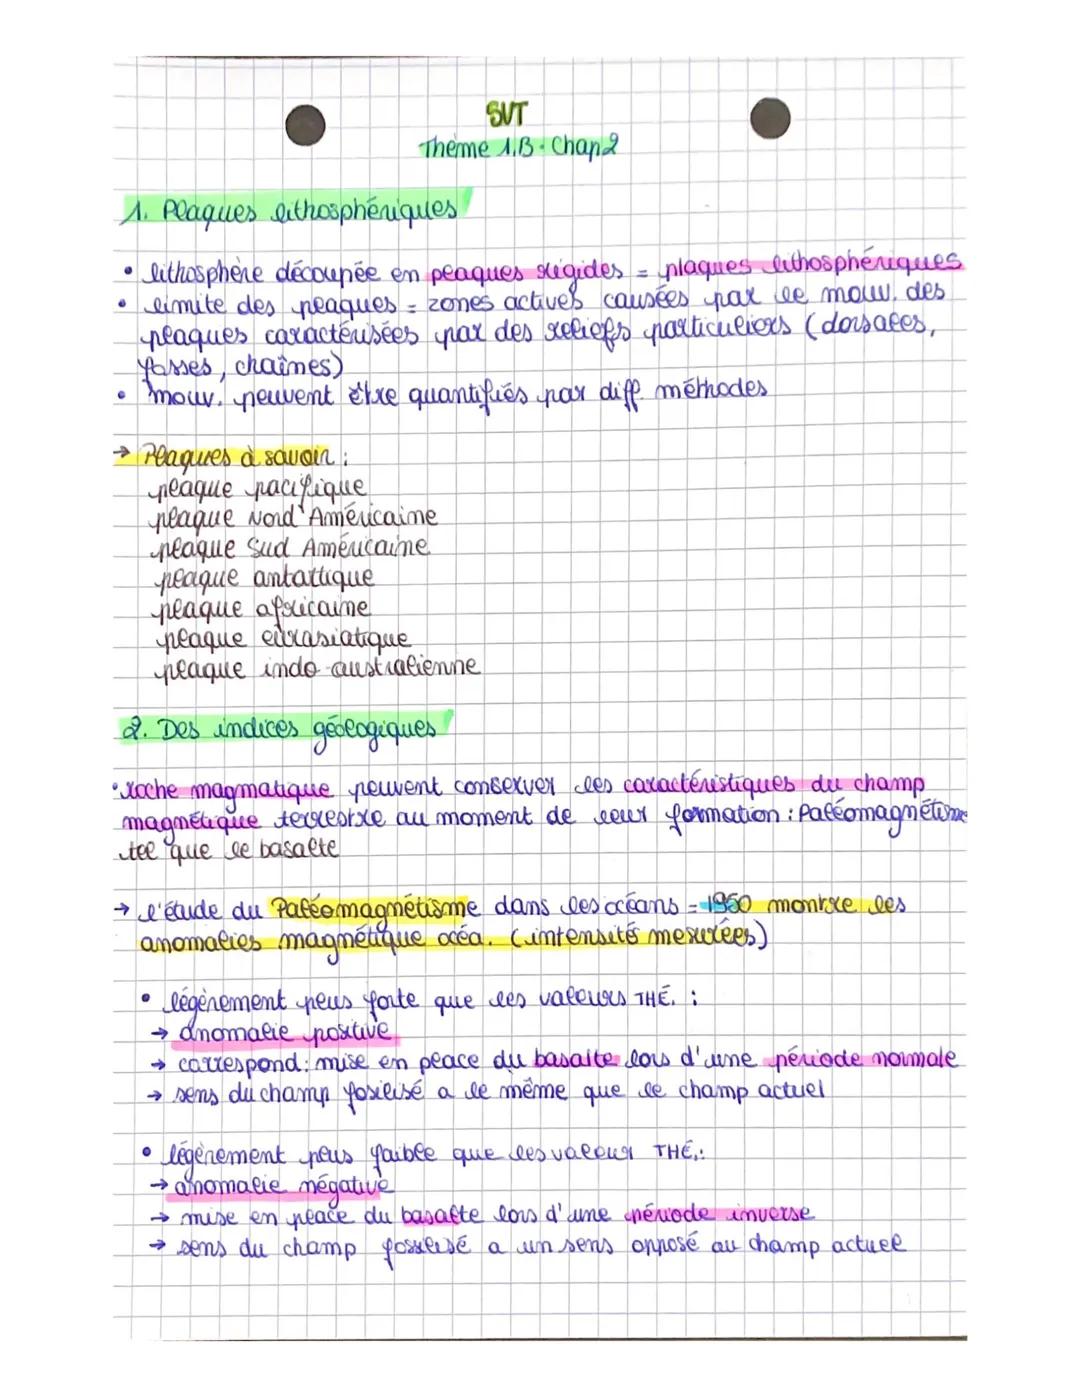 SVT
Thème 1.B · Chap 2
1. Plaques lithosphériques
• lithosphère découpée en plaques rigides = plaques lithosphériques
• limite des plaques = zones actives causées par le mouv. des
plaques caractérisées par des reliefs particuliers (dorsales,
fosses, chaînes)
• mouv. peuvent être quantifiés par diff. méthodes
→ Plaques à savoir :
plaque pacifique
plaque Nord Américaine
plaque Sud Américaine
plaque antartique
plaque africaine
plaque eurasiatique
plaque indo-australienne
2. Des indices géologiques
• roche magmatique peuvent conserver les caractéristiques du champ
magnétique terrestre au moment de leur formation : Paléomagnétisme
tel que le basalte
→ l'étude du Paléomagnétisme dans les océans = 1950 montre les
anomalies magnétique océa. (intensités mesurées)
• légèrement plus forte que les valeurs THÉ. :
→ anomalie positive
→ correspond : mise en place du basalte lors d'une période normale
→ sens du champ fossilisé a le même que le champ actuel
• légèrement plus faible que les valeur THÉ. :
→ anomalie négative
→ mise en place du basalte lors d'une période inverse
→ sens du champ fossilisé a un sens opposé au champ actuel